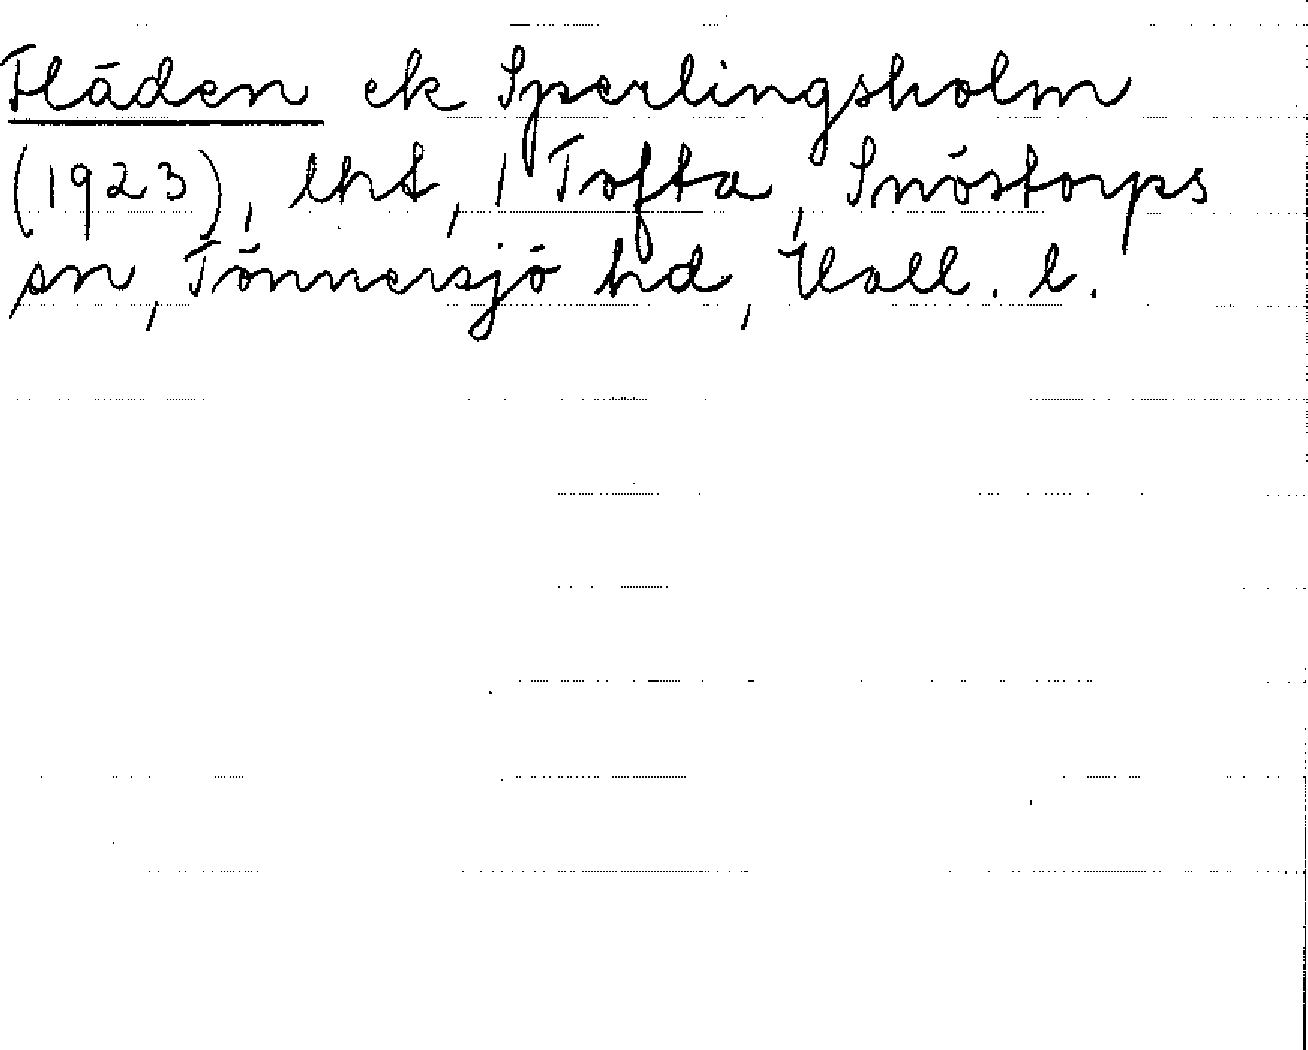 Fläden ek Sperlingsholm
(1923), lht, 1 Tofta, Snöstorps
sn, Tönnersjö hd, Hall. l.